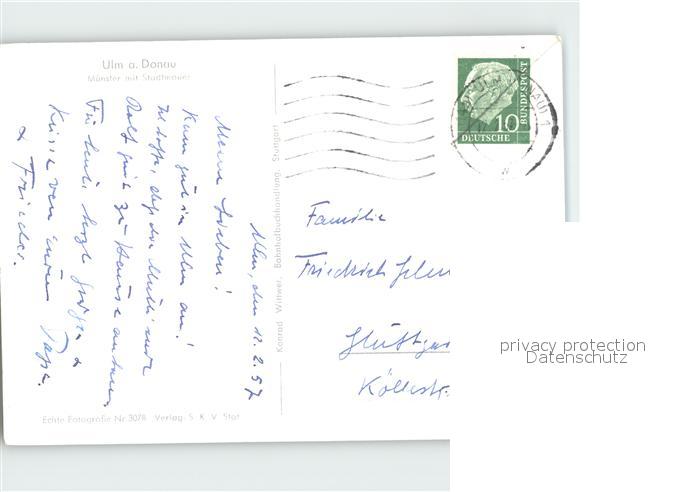 Ulm a. Donau
Münster mit Stadtmauer
Ulm, den 12.2.57
Meine Lieben!
Kam gut in Ulm an!
Ich hoffe, daß die Mutti und
Rolf gut zu Hause ankamen.
Für heute herzl. Grüße &
Küsse von eurem Papa
& Frieder.
Echte Fotografie Nr. 3078 Verlag: S. K. V. Stgt.
Konrad Wittwer, Bahnhofbuchhandlung, Stuttgart
10
DEUTSCHE
BUNDESPOST
ULM
Familie
Friedrich
Stuttgar
privacy protection
Datenschutz